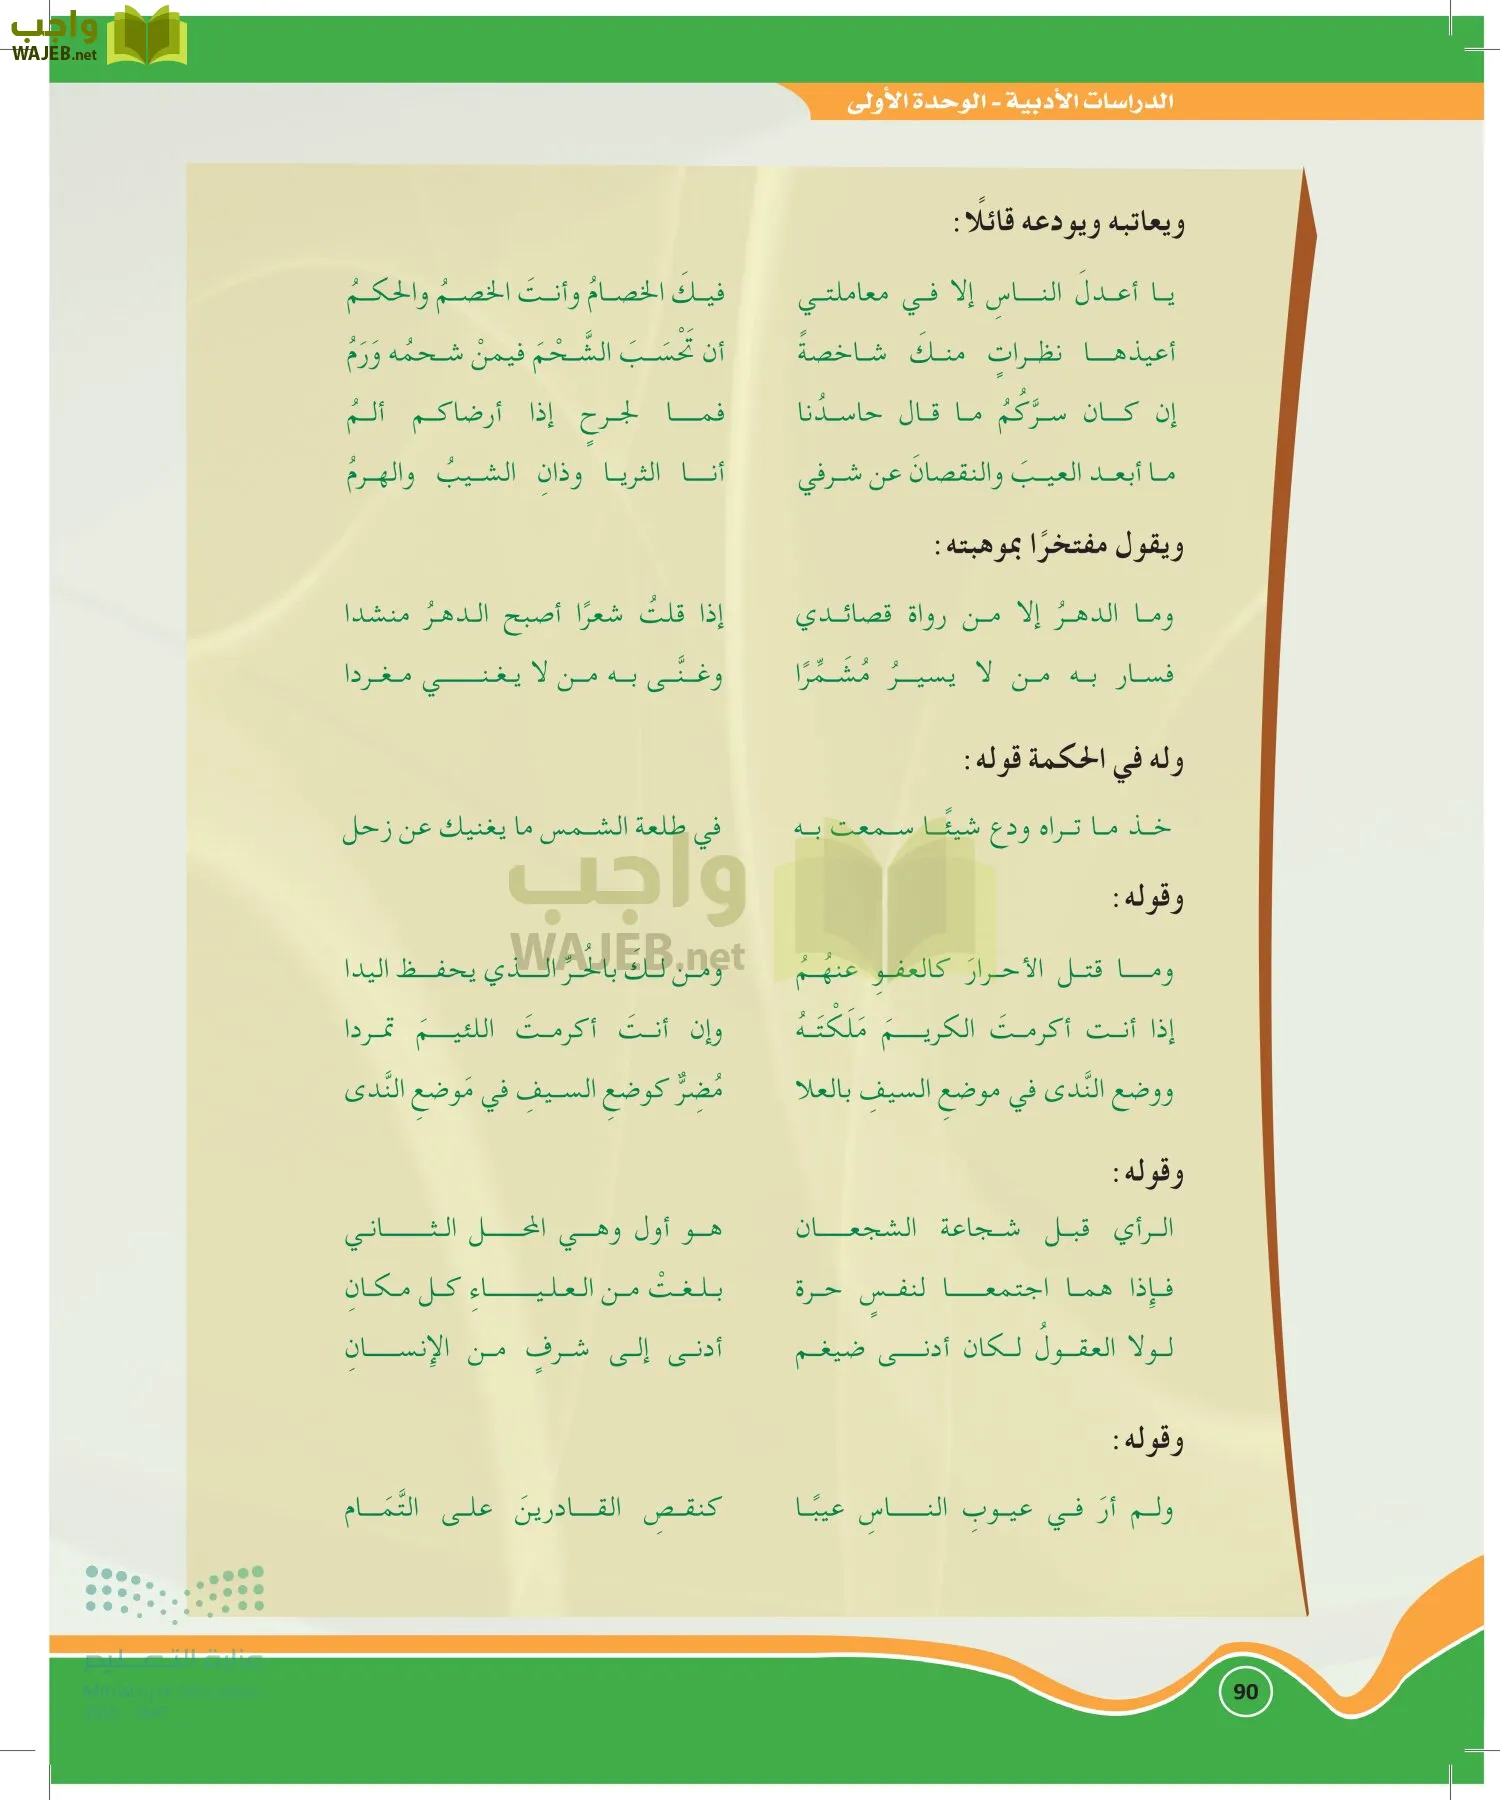 واجب
WAJEB.net
الدراسات الأدبية - الوحدة الأولى
ويعاتبه ويودعه قائلًا:
يا أعدلَ الناسِ إلا في معاملتي فيكَ الخصامُ وأنتَ الخصمُ والحكمُ
أعيذها نظراتٍ منكَ شاخصةً أن تَحْسَبَ الشَّحْمَ فيمنْ شحمُه وَرَمُ
إن كان سرَّكُمُ ما قال حاسدُنا فما لجرحٍ إذا أرضاكم ألمُ
ما أبعد العيبَ والنقصانَ عن شرفي أنا الثريا وذانِ الشيبُ والهرمُ
ويقول مفتخرًا بموهبته:
وما الدهرُ إلا من رواة قصائدي إذا قلتُ شعرًا أصبح الدهرُ منشدا
فسار به من لا يسيرُ مُشَمِّرًا وغنَّى به من لا يغني مغردا
وله في الحكمة قوله:
خذ ما تراه ودع شيئًا سمعت به في طلعة الشمس ما يغنيك عن زحل
واجب
WAJEB.net
وقوله:
وما قتل الأحرارَ كالعفوِ عنهُمُ ومن لكَ بالحُرِّ الذي يحفظ اليدا
إذا أنت أكرمتَ الكريمَ مَلَكْتَهُ وإن أنتَ أكرمتَ اللئيمَ تمردا
ووضع النَّدى في موضعِ السيفِ بالعلا مُضِرٌّ كوضعِ السيفِ في مَوضعِ النَّدى
وقوله:
الرأي قبل شجاعة الشجعان هو أول وهي المحل الثاني
فإِذا هما اجتمعا لنفسٍ حرة بلغتْ من العلياءِ كل مكانِ
لولا العقولُ لكان أدنى ضيغم أدنى إلى شرفٍ من الإنسانِ
وقوله:
ولم أرَ في عيوبِ الناسِ عيبًا كنقصِ القادرينَ على التَّمَام
وزارة التعليم
90